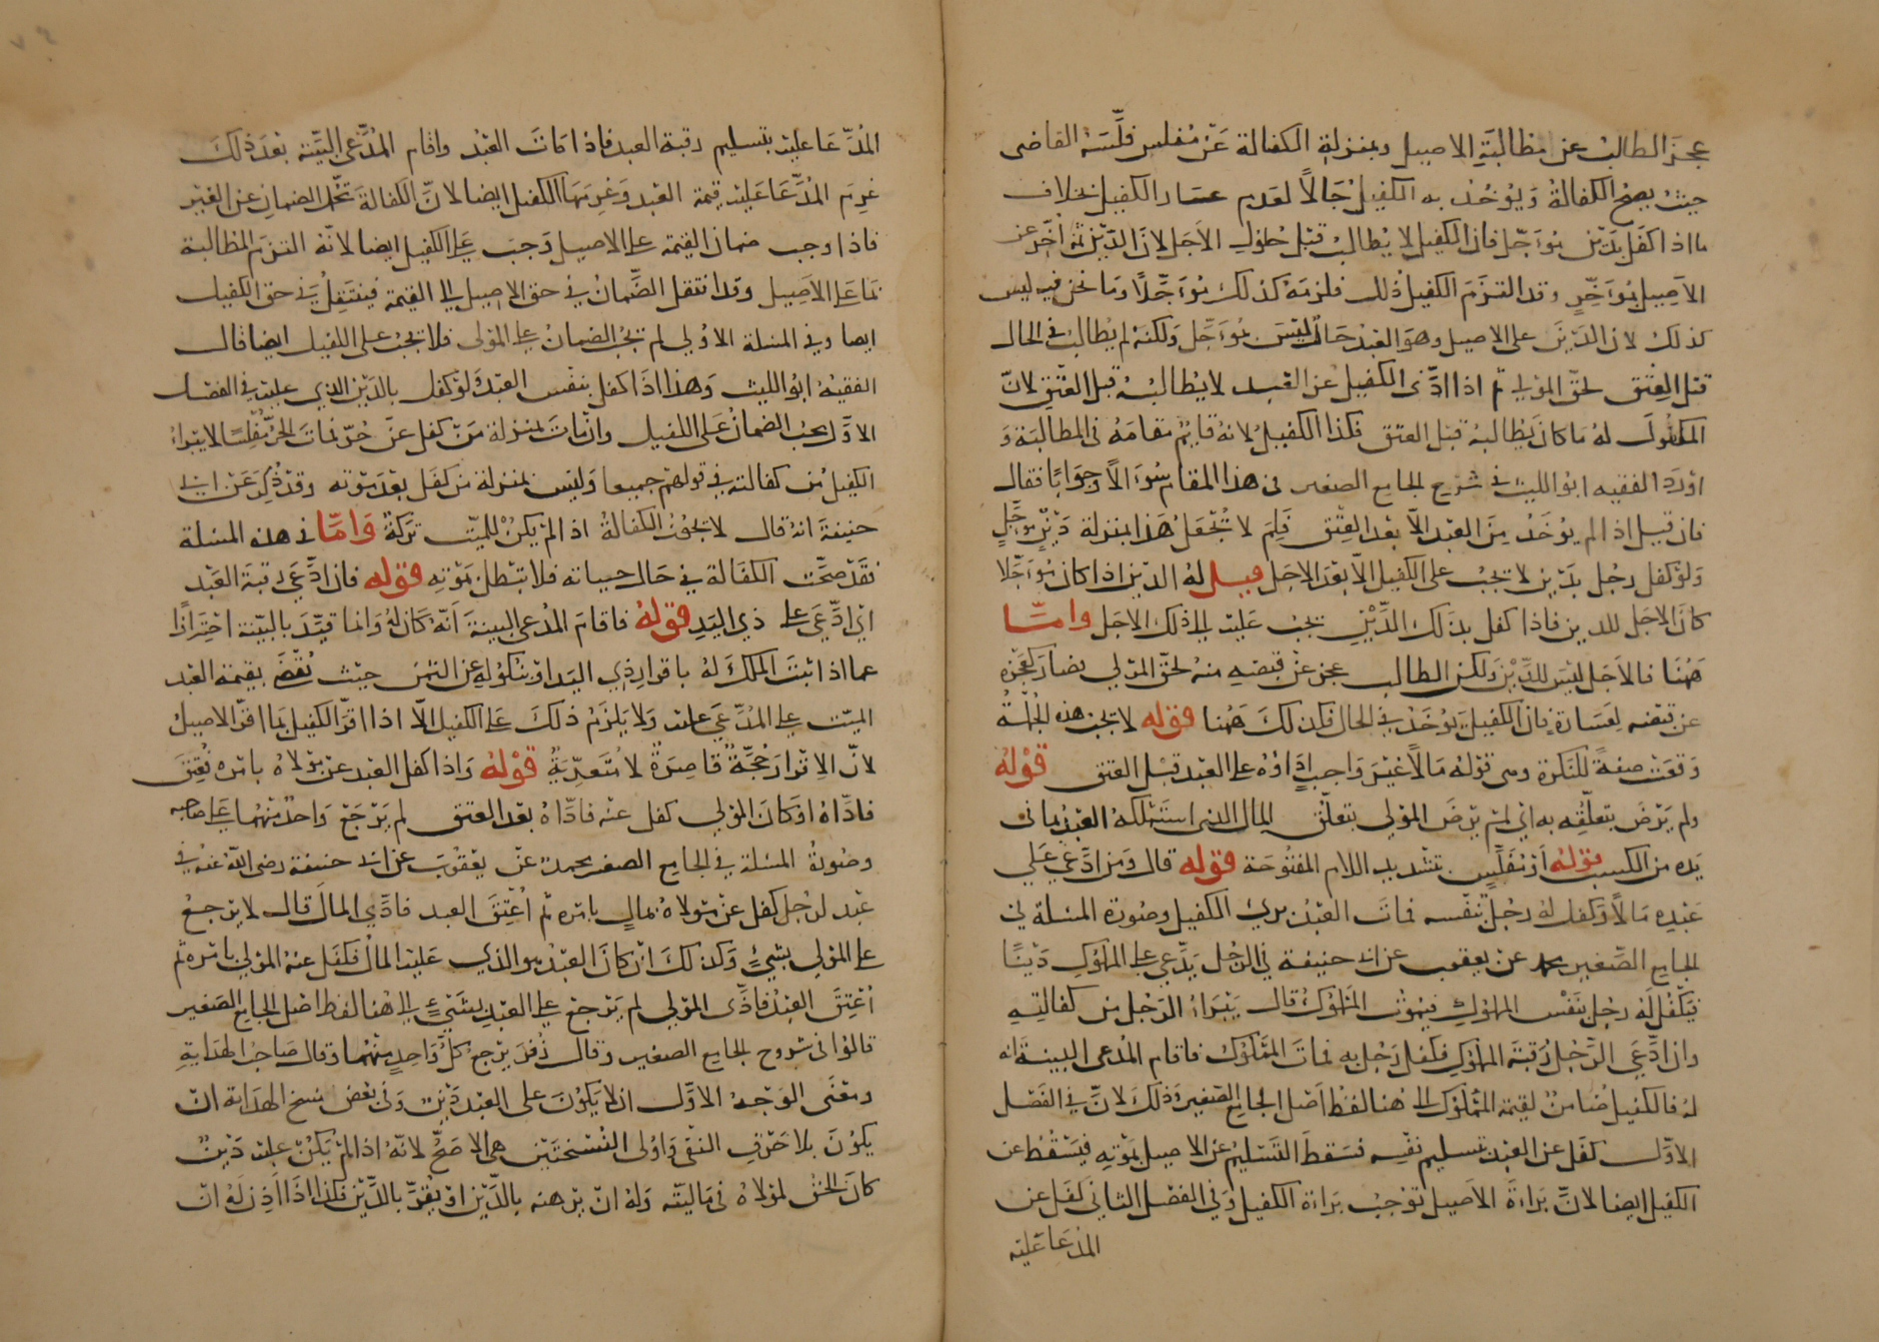 عجز الطالب عن مطالبة الاصيل وبمنزلة الكفالة عن مفلس فلسه القاضى
حيث يصح الكفالة ويؤخذ به الكفيل حالا لعدم عسار الكفيل بخلاف
ما اذا كفل بدين مؤجل فان الكفيل لا يطالب قبل حلول الاجل لان الدين ثم اخر عن
الاصيل بمؤخر وقد التزم الكفيل ذلك فلزمه كذلك مؤجلا وما نحن فيه ليس
كذلك لان الدين على الاصيل وهو العبد حال ليس بمؤجل ولكنه لم يطالب في الحال
قبل العتق لحق المولى ثم اذا ادى الكفيل عن العبد لا يطالبه قبل العتق لان
المكفول له ما كان يطالبه قبل العتق فكذا الكفيل لانه قايم مقامه في المطالبة و
اورد الفقيه ابو الليث في شرح الجامع الصغير في هذا المقام سؤالا وجوابا فقال
فان قيل اذا لم يؤخذ من العبد الا بعد العتق فلم لا تجعل هذا بمنزلة دين مؤجل
ولو كفل رجل بدين لا تجب على الكفيل الا بعد الاجل قيل له الدين اذا كان مؤجلا
كان الاجل للدين فاذا كفل بذلك الدين تجب عليه الى ذلك الاجل واما
ههنا فالاجل ليس للدين ولكن الطالب عجز عن قبضه منه لحق المولى فصار كعجزه
عن قبضه لعسارة فان الكفيل يؤخذ في الحال فكذلك ههنا قوله لا تجب هذه الجملة
وقعت صفة للنكرة وهى قوله مالا غير واجب اداؤه على العبد قبل العتق قوله
ولم يرض بتعلقه به اي لم يرض المولى بتعلق المال الذي استهلكه العبد بما في
يده من الكسب قوله او مفلس بتشديد اللام المفتوحة قوله قال ومن ادعى على
عبده مالا وكفل له رجل بنفسه فمات العبد برئ الكفيل وصورة المسئلة في
الجامع الصغير محمد عن يعقوب عن ابي حنيفة في الرجل يدعي على المملوك دينا
فيكفل له رجل بنفس المملوك فيموت المملوك قال يبراء الرجل من كفالته
وان ادعى الرجل رقبة المملوك فكفل رجل به فمات المملوك فاقام المدعى البينة انه
له فالكفيل ضامن لقيمة المملوك الى هنا لفظ اصل الجامع الصغير وذلك لان في الفصل
الاول كفل عن العبد بتسليم نفسه فسقط التسليم عن الاصيل بموته فيسقط عن
الكفيل ايضا لان براءة الاصيل توجب براءة الكفيل وفي الفصل الثاني كفل عن
المدعا عليه
المدعا عليه بتسليم رقبة العبد فاذا مات العبد واقام المدعي البينة بعد ذلك
غرم المدعا عليه قيمة العبد وغرمها الكفيل ايضا لان الكفالة تحمل الضمان عن الغير
فاذا وجب ضمان القيمة على الاصيل وجب على الكفيل ايضا لانه التزم المطالبة
بما على الاصيل وقد انتقل الضمان في حق الاصيل الى القيمة فينتقل في حق الكفيل
ايضا وفي المسئلة الاولى لم تجب الضمان على المولى فلا تجب على الكفيل ايضا قال
الفقيه ابو الليث وهذا اذا كفل بنفس العبد ولو كفل بالدين الذي عليه في الفصل
الاول يجب الضمان على الكفيل وان مات بمنزلة من كفل عن حر فمات الحر مفلسا لا يبراء
الكفيل من كفالته في قولهم جميعا وليس بمنزلة من كفل بعد موته وقد ذكر عن ابي
حنيفة انه قال لا تجوز الكفالة اذا لم يكن للميت تركة واما في هذه المسئلة
فقد صحت الكفالة في حال حياته فلا تبطل بموته قوله فان ادعى رقبة العبد
اي ادعى على ذي اليد قوله فاقام المدعي البينة انه كان له وانما قيد بالبينة احترازا
عما اذا ثبت الملك له باقرار ذي اليد او نكوله عن اليمين حيث نقض بقيمة العبد
الميت على المدعى عليه ولا يلزم ذلك على الكفيل الا اذا اقر الكفيل بما اقر الاصيل
لان الاقرار حجة قاصرة لا متعدية قوله واذا كفل العبد عن مولاه بامره فعتق
فاداه او كان المولى كفل عنه فاداه بعد العتق لم يرجع واحد منهما على صاحبه
وصورة المسئلة في الجامع الصغير محمد عن يعقوب عن ابي حنيفة رضى الله عنه في
عبد لرجل كفل عن مولاه بمال بامره ثم اعتق العبد فادى المال قال لا يرجع
على المولى بشيء وكذلك ان كان العبد هو الذي عليه المال فكفل عنه المولى بامره ثم
اعتق العبد فادى المولى لم يرجع على العبد بشيء الى هنا لفظ اصل الجامع الصغير
قالوا في شروح الجامع الصغير وقال زفر يرجع كل واحد منهما وقال صاحب الهداية
ومعنى الوجه الاول ان لا يكون على العبد دين وفي بعض نسخ الهداية ان
يكون بلا حرف النفي واولى النسختين هي الاصح لانه اذا لم يكن عليه دين
كان الحق لمولاه في ماليته وله ان يرهنه بالدين او يقر بالدين فكذا اذا اذن له ان